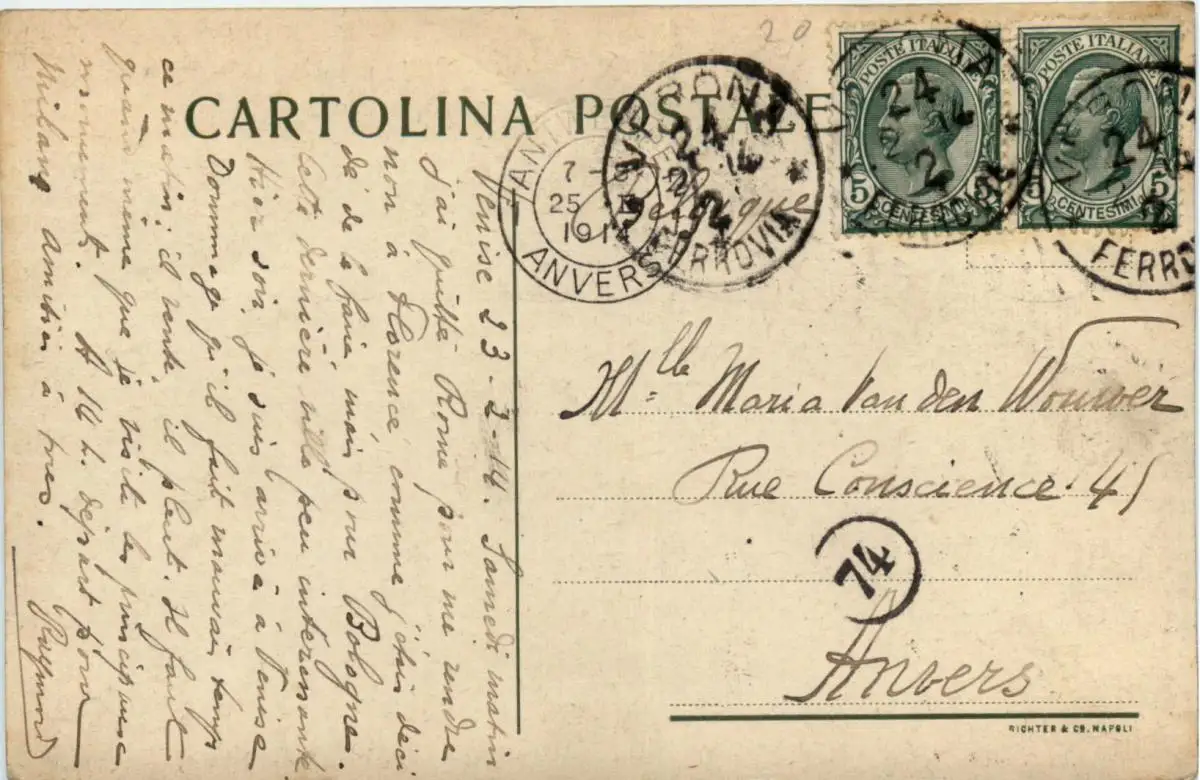 CARTOLINA POSTALE
Venise 23-2-14. Samedi matin
j'ai quitté Rome pour me rendre
non à Florence, comme j'étais déci
dé de le faire, mais pour Bologne.
Cette dernière ville peu interessante
Hier soir, je suis arrivé à Venise
Dommage qu'il fait mauvais temps
ce matin; il vente, il pleut. Il faut
quand même que je visite les principaux
monuments. A 14 h. départ pour
Milano amitiés à tous.
Raymond
20
Belgique
VERONA
24
2
14
FERROVIA
7
25
1914
ANVERS
POSTE ITALIANE
5 CENTESIMI 5
VERONA
24
2
14
FERROVIA
POSTE ITALIANE
5 CENTESIMI 5
24
2
Mlle Maria Van den Wouwer
Rue Conscience. 45
74
Anvers
RICHTER & Co. NAPOLI